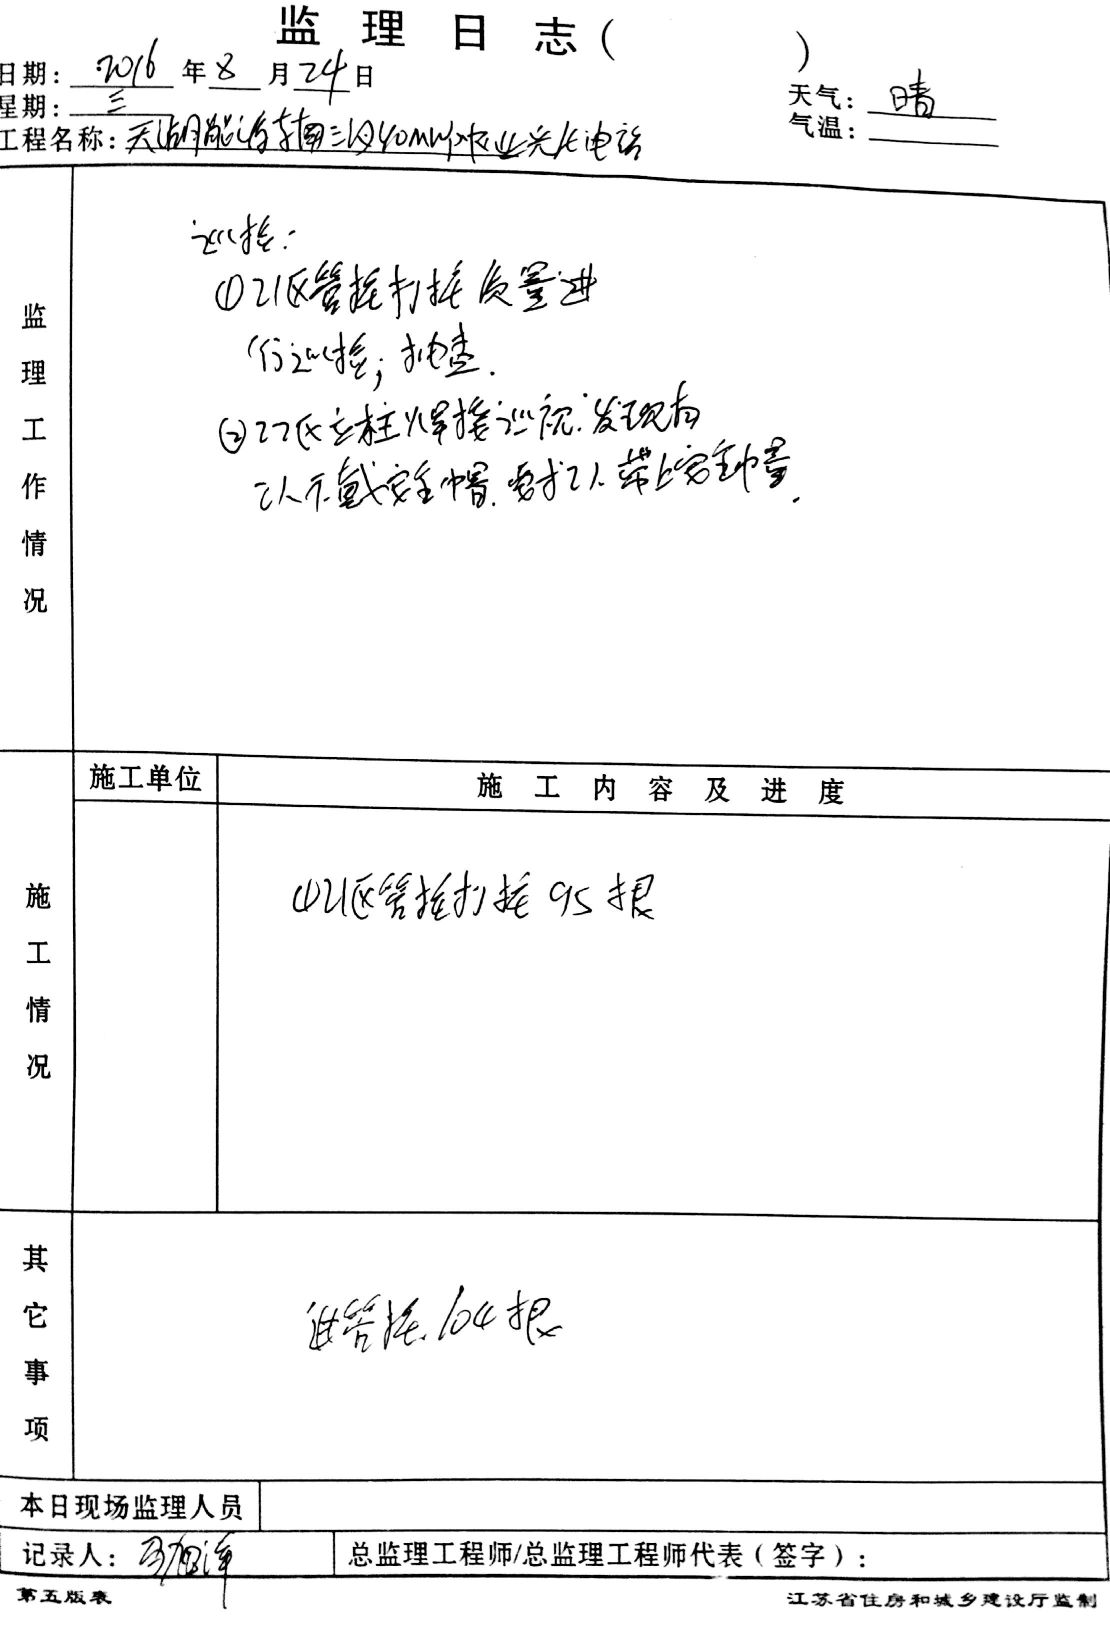 监理日志(          )
日期: 2016 年 8 月 24 日
星期: 三
天气: 晴
气温:
工程名称: 三 40MW 农业光伏电站
监理工作情况
巡检:
①21区管桩打桩质量进
行巡检; 抽查.
②22区立柱焊接巡视. 发现有
工人不戴安全帽. 要求工人带上安全帽.
施工单位
施工内容及进度
施工情况
①21区管桩打桩 95 根
其它事项
进管桩. 104根
本日现场监理人员
记录人:
总监理工程师/总监理工程师代表(签字):
第五版表
江苏省住房和城乡建设厅监制